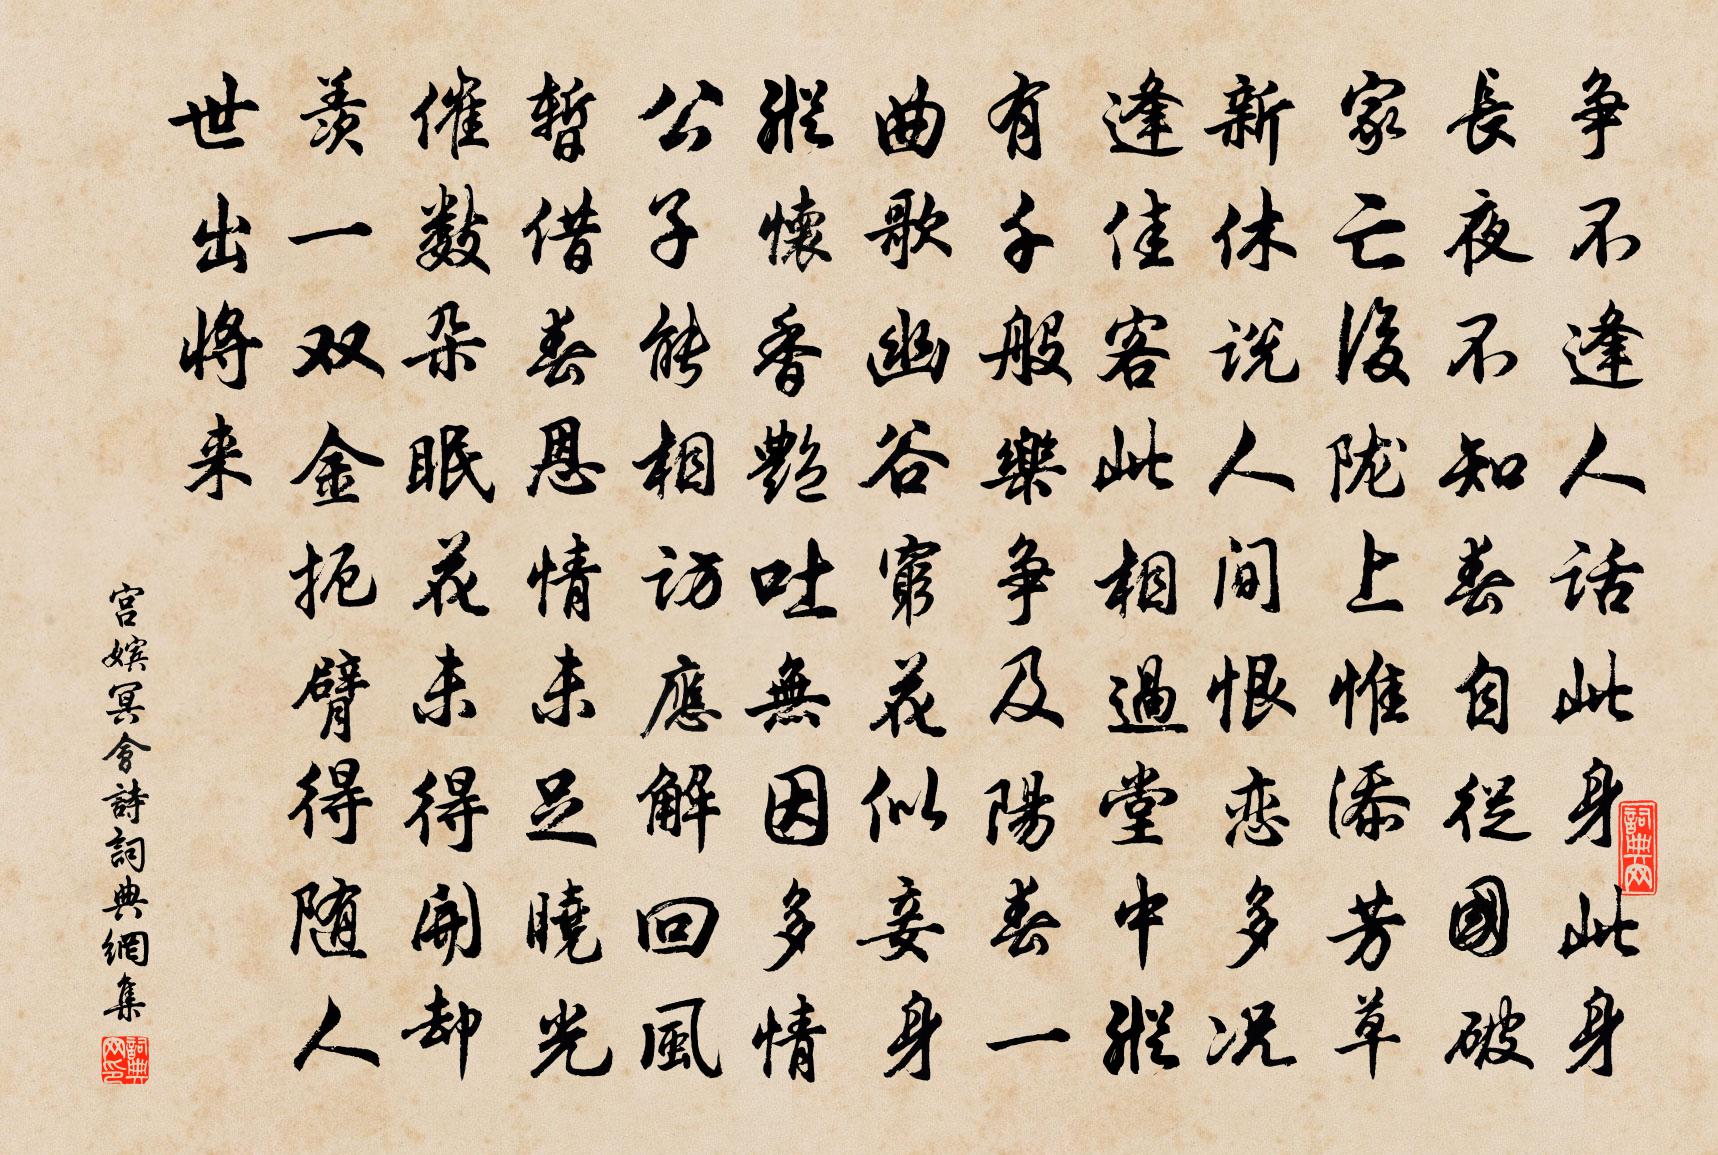 争不逢人話此身此身
長夜不知春自從國破
家亡後陇上惟添芳草
新休說人间恨恋多况
逢佳客此相過堂中縱
有千般樂争及陽春一
曲歌幽谷窮花似妾身
縱懷香艷吐無因多情
公子能相访應解回風
暫借春恩情未足曉光
催數朵眠花未得開却
羨一双金扼臂得随人
世出将来
宫嬪冥會詩詞典網集
詞典网
詞典网印